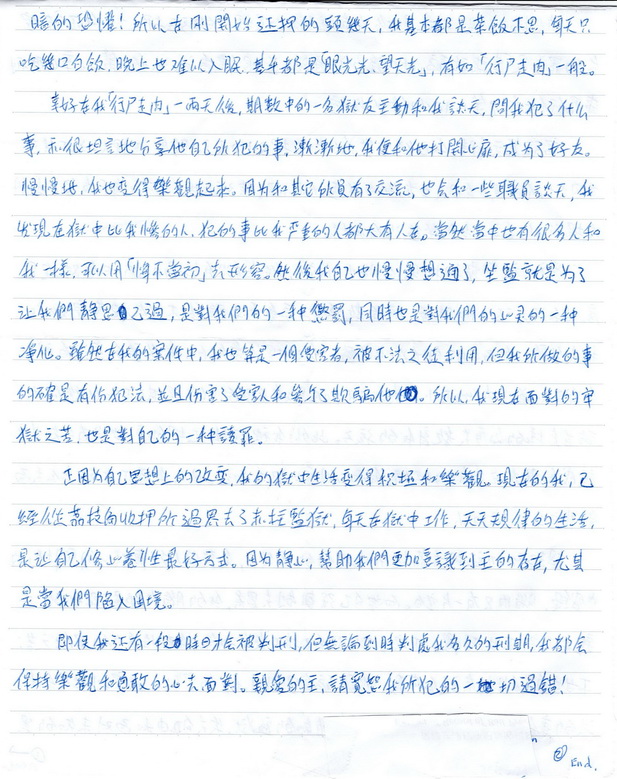 暗的恐懼！所以在剛開始還押的頭幾天，我基本都是茶飯不思，每天只
吃幾口白飯，晚上也難以入眠，基本都是「眼光光、望天光」，有如「行尸走肉」一般。
幸好在我「行尸走肉」一兩天後，期數中的一名獄友主動和我談天，問我犯了什么
事，亦很坦言地分享他自己所犯的事，漸漸地，我便和他打開心扉，成為了好友。
慢慢地，我也变得樂觀起來。因為和其它所員有了交流，也會和一些職員談天，我
发現在獄中比我慘的人，犯的事比我严重的人都大有人在。當然當中也有很多人和
我一樣，可以用「悔不當初」去形容。然後我自己也慢慢想通了，坐監就是為了
让我們靜思己過，是對我們的一种懲罰，同時也是對我們的心灵的一种
净化。雖然在我的案件中，我也算是一個受害者，被不法之徒利用，但我所做的事
的確是有份犯法，並且伤害了受家人和
欺騙他
。所以，我現在面對的牢
獄之苦，也是對自己的一种贖罪。
正因為自己思想上的改变，我的獄中生活变得积极和樂觀。現在的我，已
經從荔枝角收押所過界去了赤柱監獄，每天在獄中工作，天天規律的生活，
是让自己修心養性最好方式。因為靜心，幫助我們更加意識到主的存在，尤其
是當我們陷入困境。
即使我还有一段時日才會被判刑，但無論到時判處我多久的刑期，我都會
保持樂觀和勇敢的心去面對。親愛的主，請寬恕我所犯的一切過錯！
② End.